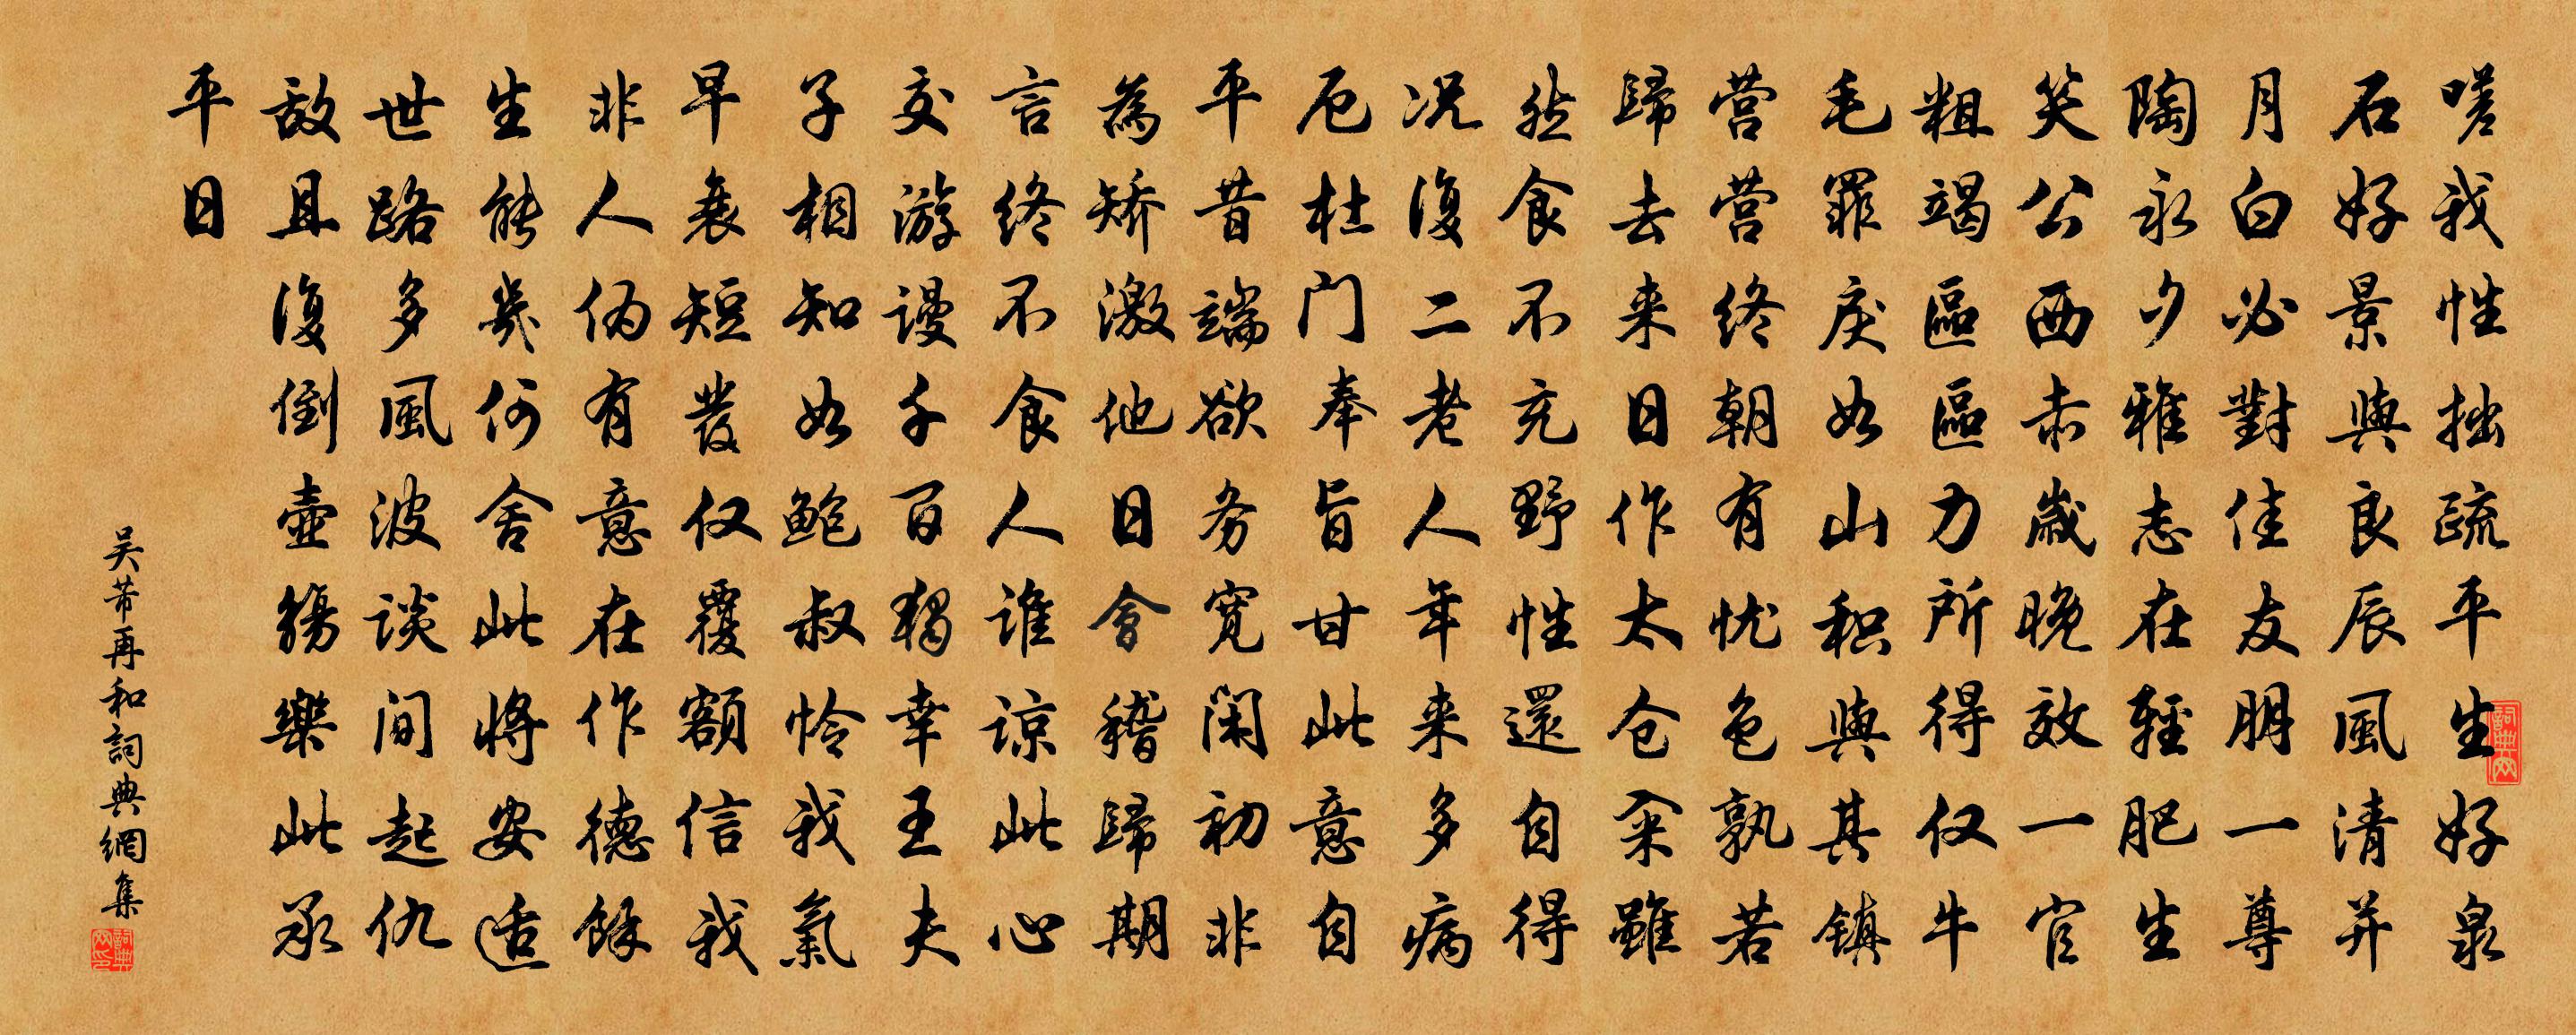 嗟我性拙疏平生好泉
石好景與良辰風清并
月白必對佳友朋一尊
陶永夕雅志在輕肥生
笑公西赤歲晚效一官
粗竭區區力所得仅牛
毛罪戾如山积與其镇
营营终朝有忧色孰若
歸去来日作太仓籴雖
然食不充野性還自得
况復二老人年来多病
厄杜门奉旨甘此意自
平昔端欲务宽闲初非
為矫激他日會稽歸期
言终不食人谁谅此心
交游谩千百独幸王夫
子相知如鲍叔怜我氣
早衰短發仅覆額信我
非人伪有意在作德餘
生能幾何舍此将安适
世路多風波谈间起仇
敌且復倒壶觞樂此永
平日
吴芾再和詞典網集
詞典网
詞典网印